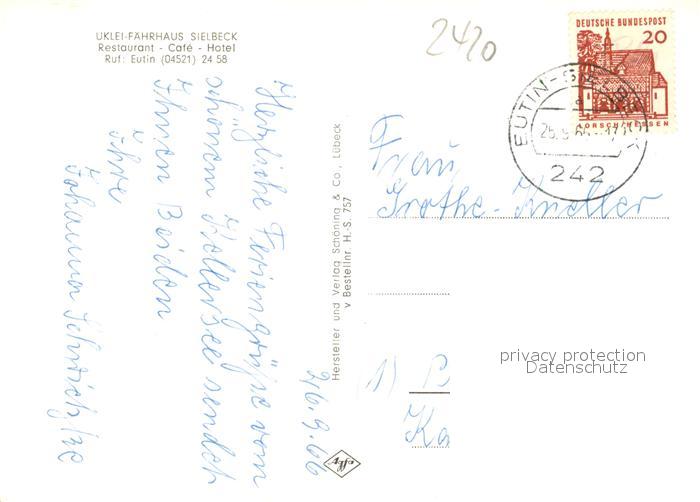 UKLEI-FÄHRHAUS SIELBECK
Restaurant - Café - Hotel
Ruf: Eutin (04521) 24 58
2420
DEUTSCHE BUNDESPOST
20
LORSCH/HESSEN
EUTIN-S
25.9.66-17
242
26.9.66
Herzliche Feriengrüße vom
schönen Kellersee sendet
Ihnen Beiden
Ihre
Johanna
Hersteller und Verlag Schöning & Co., Lübeck
V Bestellnr. H.-S. 757
Agfa
Frau
Grothe-Kneller
(1) B
Ka
privacy protection
Datenschutz